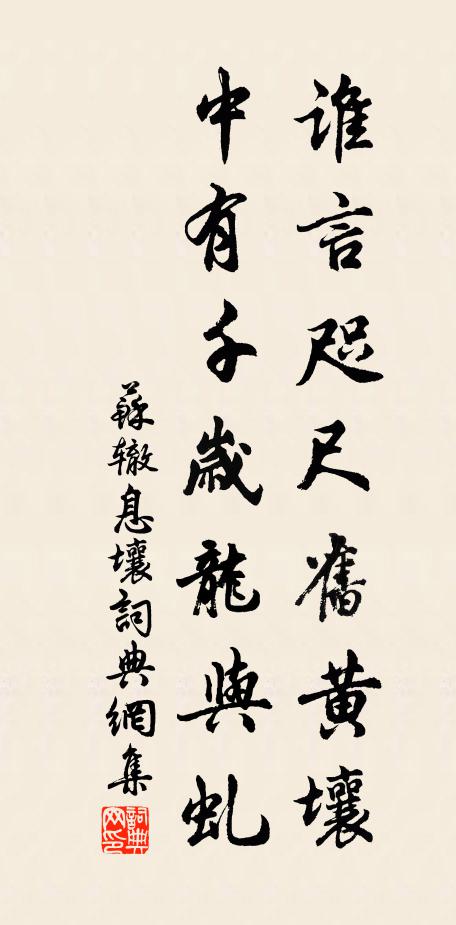 誰言咫尺舊黃壤
中有千歲龍與虬
蘇轍息壤詞典網集
詞典网印